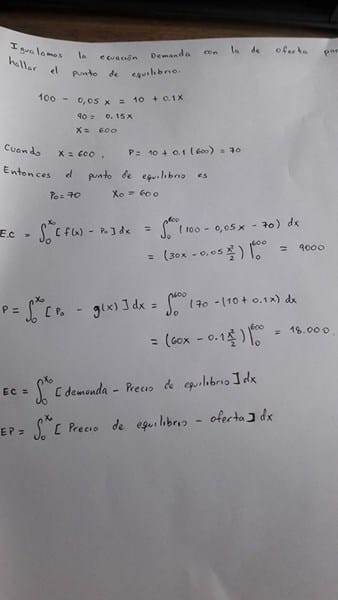 Igualamos la ecuación Demanda con la de oferta par
hallar el punto de equilibrio.
100 - 0,05 x = 10 + 0.1x
90 = 0.15x
x = 600
Cuando x = 600, P = 10 + 0.1 (600) = 70
Entonces el punto de equilibrio es
P₀ = 70 X₀ = 600
E.C = ∫₀^x₀ [f(x) - P₀] dx = ∫₀^600 (100 - 0,05x - 70) dx
= (30x - 0.05 x²/2) |₀^600 = 9000
P = ∫₀^x₀ [P₀ - g(x)] dx = ∫₀^600 (70 - (10 + 0.1x) dx
= (60x - 0.1 x²/2) |₀^600 = 18.000.
EC = ∫₀^x₀ [demanda - Precio de equilibrio] dx
EP = ∫₀^x₀ [Precio de equilibrio - oferta] dx